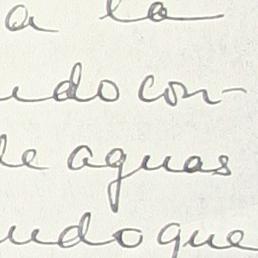 a la
ndo con-
de aguas
ndo que